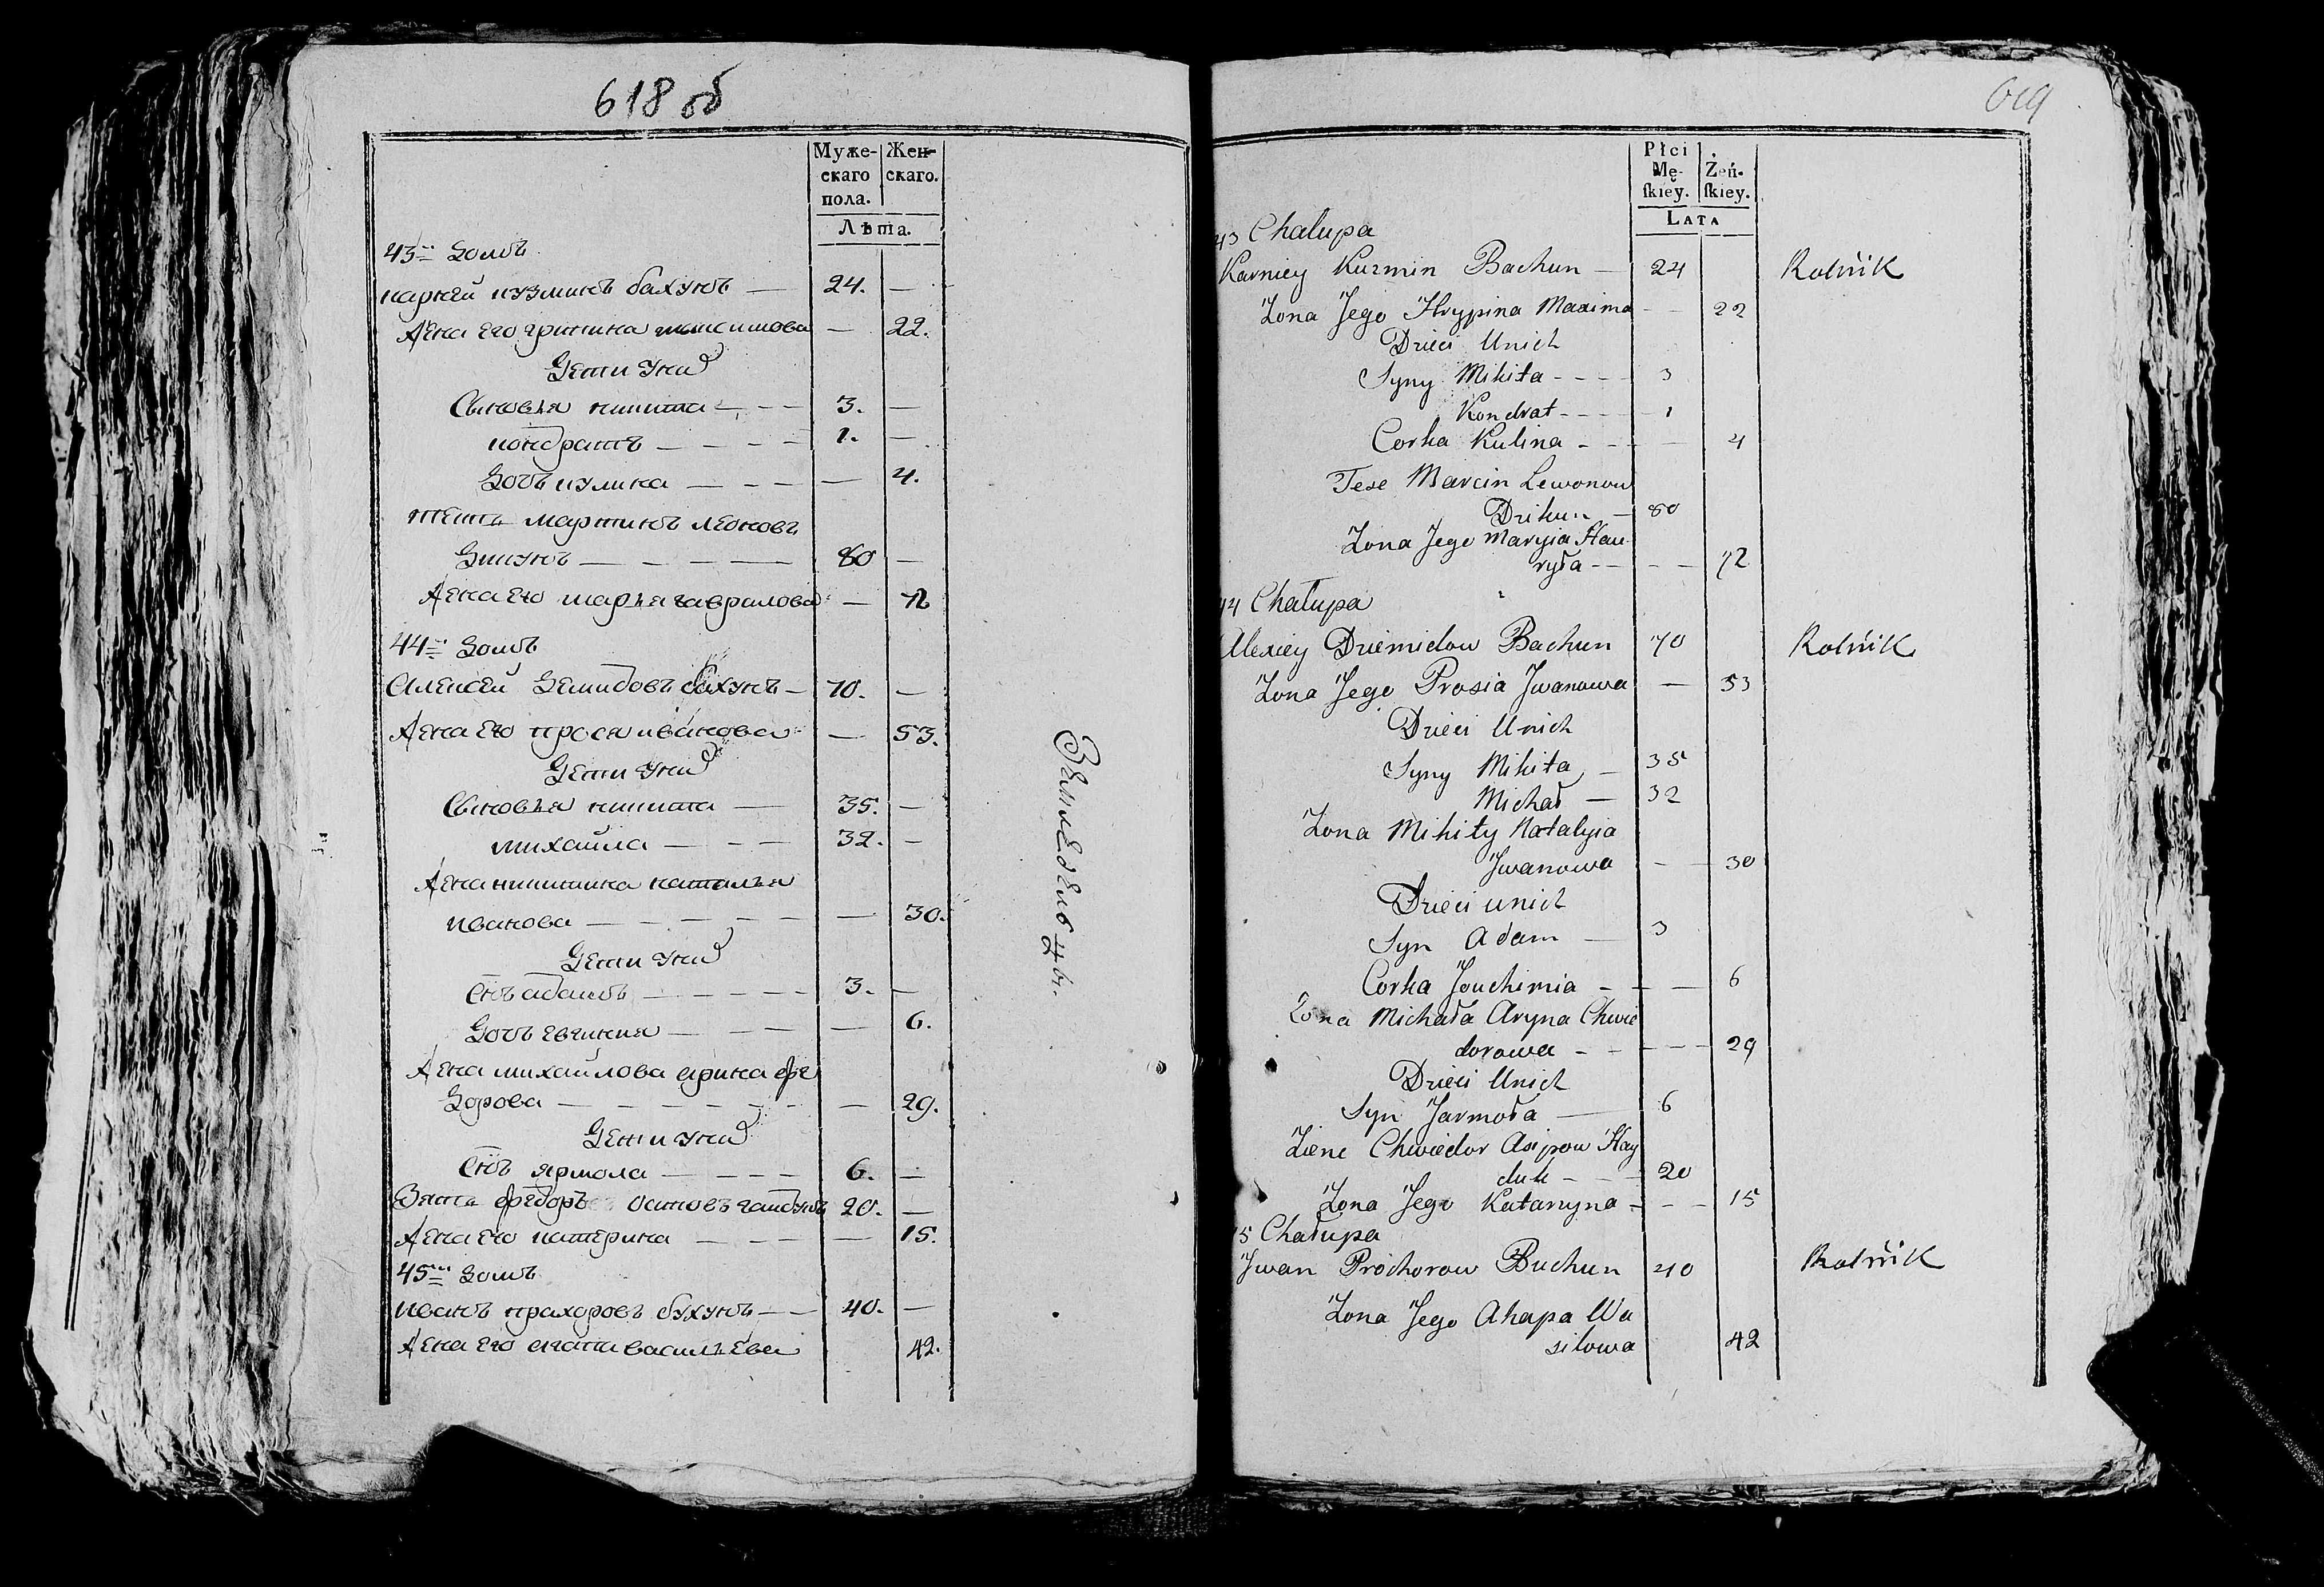 618 об
Муже-
скаго
пола.
Жен-
скаго.
Лѣта.
43й домъ
карней кузминъ бахунъ — 24. —
Жена его грипина максимова — 22.
Дети уних
Сыновья никита — 3. —
кондратъ — 1. —
Дочъ кулина — — 4.
тесть мартинъ леоновъ
Дикунъ — 80 —
Жена его марья гаврилова — 72
44й домъ
Алексей Демидовъ бахунъ — 70. —
Жена его прося иванова — 53.
Дети уних
Сыновья никита — 35. —
михаила — 32. —
Жена никитина наталья
иванова — — 30.
Дети уних
Снъ адамъ — 3. —
Дочъ евгиния — — 6.
Жена михайлова арина фе
дорова — — 29.
Дети уних
Снъ ярмола — 6. —
Зять федоръ осиповъ гайдукъ 20. —
Жена его катерина — — 15.
45й домъ
иванъ прахоровъ бухунъ — 40. —
Жена его агапа васильева 42.
Земледелецъ.
619
Płci
Mę-
skiey.
Żeń-
skiey.
Lata
43 Chalupa
Karniey Kuzmin Bachun — 24 Rolnik
Zona Jego Hrypina Maxima — 22
Dzieci Unich
Syny Mikita - - - 3
Kondrat - - - 1
Corka Kulina - - — 4
Tesc Marcin Lewonow
Dzikun — 80
Zona Jego Maryia Hau
ryła - - - - 72
44 Chałupa
Alexiey Dziemidow Bachun 70 Rolnik
Zona Jego Prosia Jwanowa — 53
Dzieci Unich
Syny Mikita — 35
Michał — 32
Zona Mikity Natalyia
Jwanowa - - 30
Dzieci unich
Syn Adam — 3
Corka Jouchimia - — 6
Zona Michała Aryna Chwie
dorowa - - - - 29
Dzieci Unich
Syn Jarmoła — 6
Ziene Chwiedor Asipow Hay
duk - - - 20
Zona Jego Katarzyna - - - 15
5 Chałupa
Jwan Prochorow Buchun 40 Rolnik
Zona Jego Ahapa Wa
silowa 42